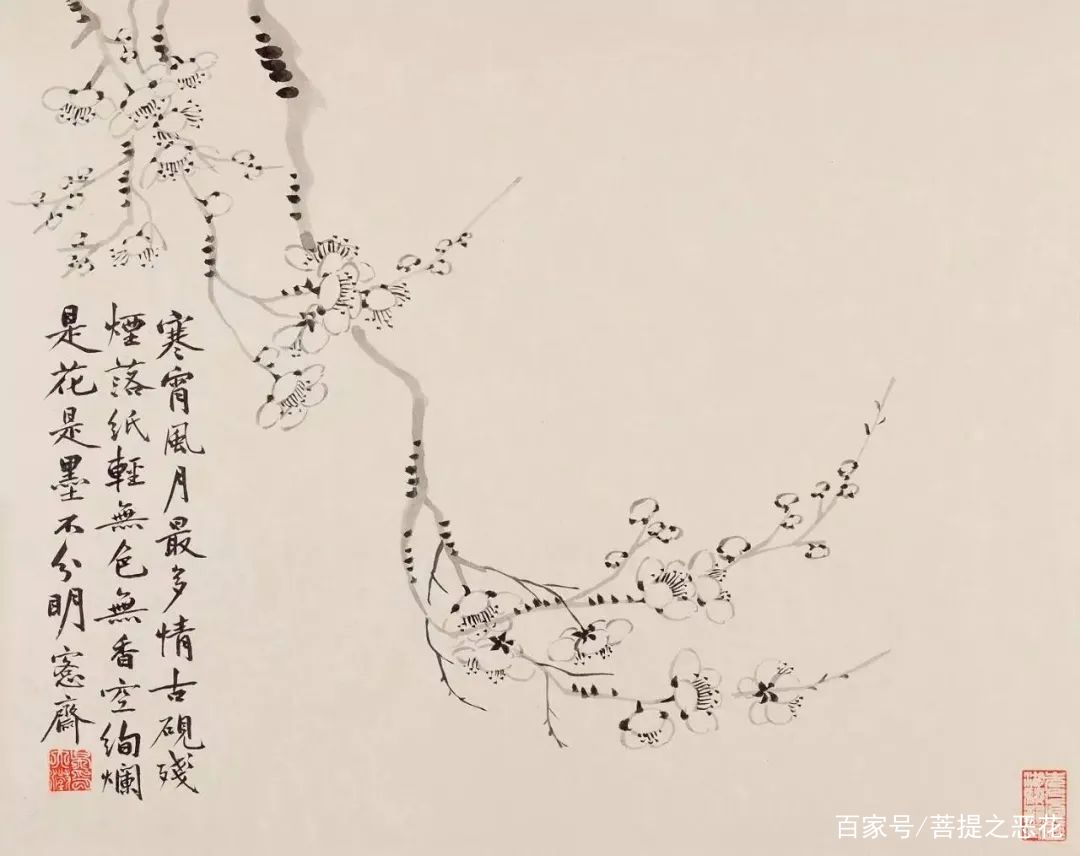 寒宵風月最多情古硯殘
煙落紙輕無色無香空絢爛
是花是墨不分明窓齋
百家号/菩提之恶花